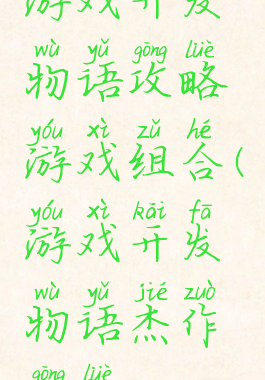 游戏开发
wù yǔ gōng lüè
物语攻略
yóu xì zǔ hé
游戏组合(
yóu xì kāi fā
游戏开发
wù yǔ jié zuò
物语杰作
gōng lüè